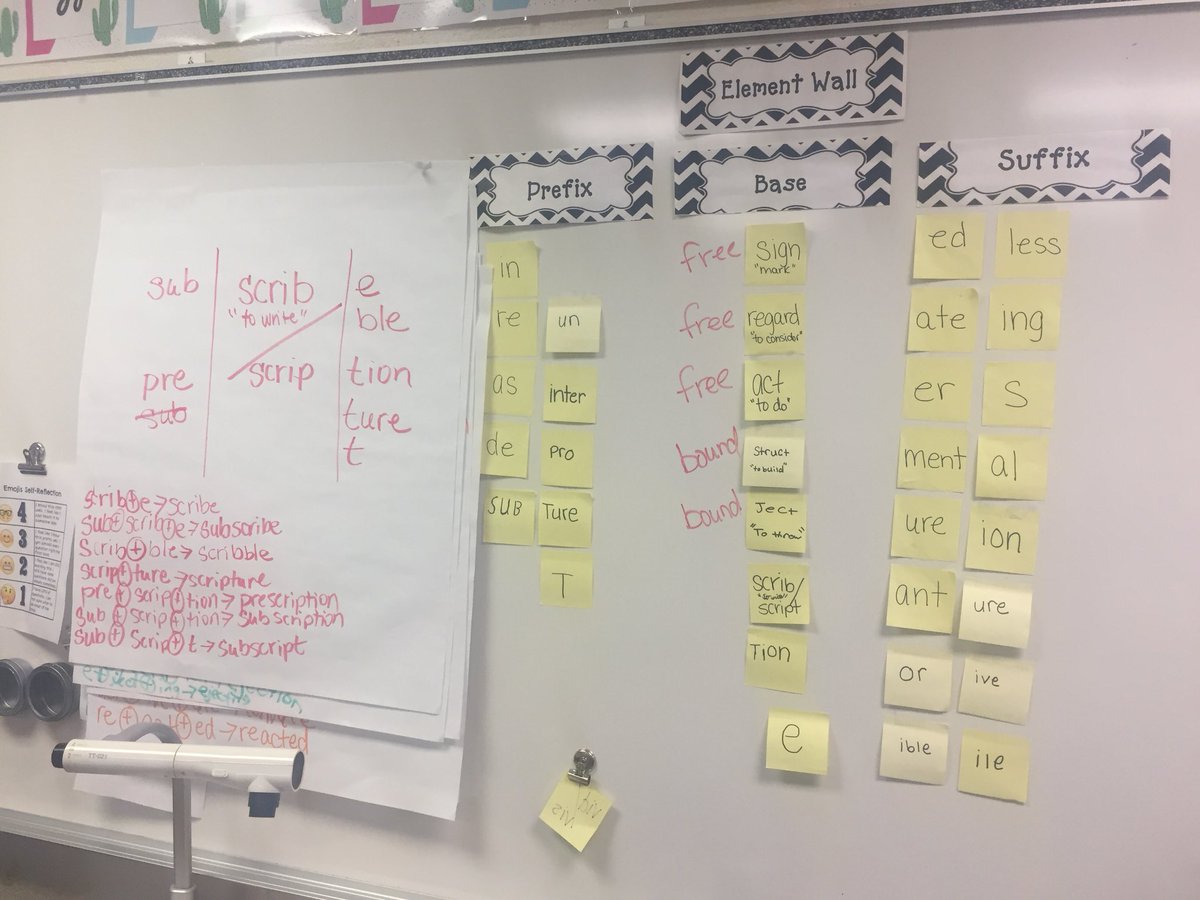 Element Wall
Prefix
Base
Suffix
sub scrib e
"to write" ble
pre scrip tion
sub ture
t
scrib+e→scribe
sub+scrib+e→subscribe
Scrib+ble→scribble
scrip+ture→scripture
pre+scrip+tion→prescription
sub+scrip+tion→Subscription
sub+scrip+t→subscript
re+act+ed→reacted
in
re
un
as
inter
de
pro
SUB
Ture
T
free
sign
"mark"
free
regard
"to consider"
free
act
"to do"
bound
struct
"to build"
bound
Ject
"To throw"
scrib/
script
Tion
e
ed
less
ate
ing
er
s
ment
al
ure
ion
ant
ure
or
ive
ible
ile
Emojis Self-Reflection
4
3
2
1
TT-02